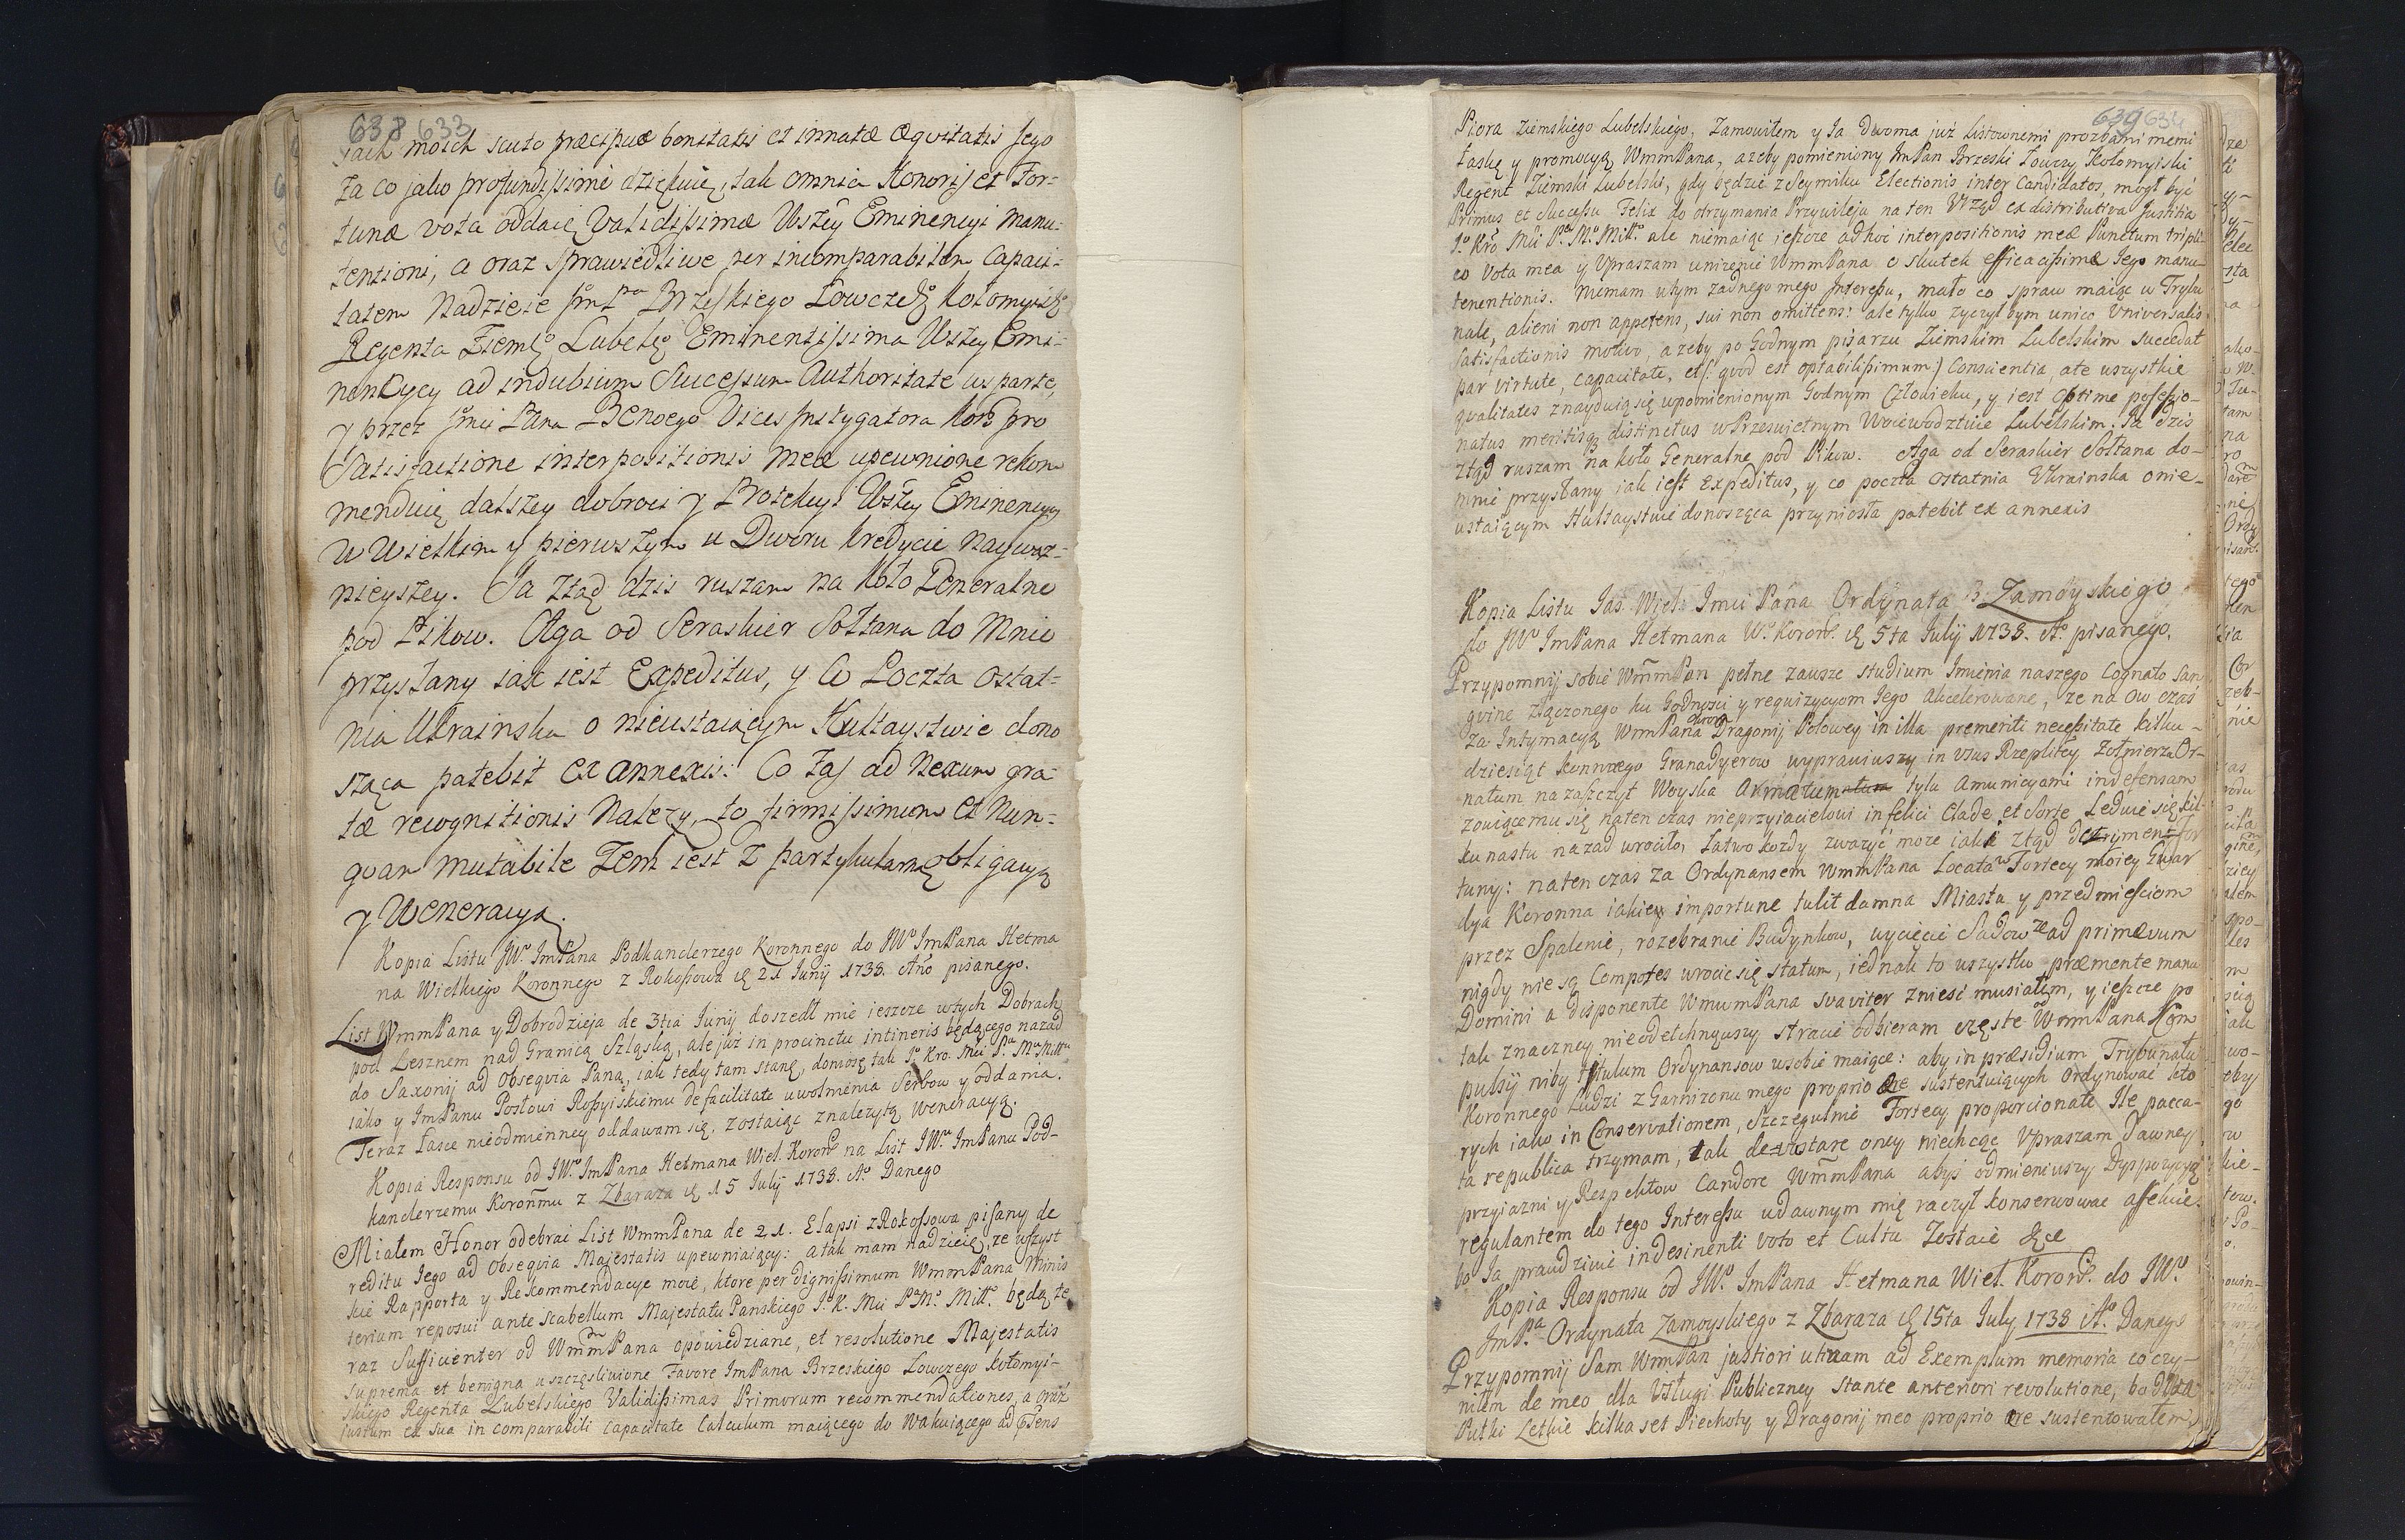 638 633
iach moich scuto præcipuæ bonitatis et innatæ æqvitatis Jego
za co jako profundissime dziękuię, tak omnia Honoris et For-
tunæ vota oddaię validissimæ Wszey Eminencyi manu-
tentioni, a oraz sprawiedliwe per incomparabilem capaci-
tatem Nadzieie Jmpa Brzeskiego Łowczego Kołomyisko
Regenta Ziemgo Lubelgo Eminentissima Wszey Emi-
nencyey ad indubium Successum Authoritate wsparte,
y przez Jmci Pana Benoego Vices Instygatora Kor. pro
Satisfactione interpositionis meæ upewnione rekom
menduię dalszey dobroci y Protekcyi Wszey Eminencyi
w Wielkim y pierwszym u Dworu kredycie nayważ-
nieyszey. Ja ztąd dzis ruszam na Koło Generalne
pod Pikow. Aga od Seraskier Sołtana do Mnie
przysłany iak iest Expeditus, y co Poczta ostat-
nia Ukrainska o nieustaiącym Hultaystwie dono
sząca patebit ex annexis. Co zaś ad nexum gra-
tæ recognitionis Należy, to firmissimum et nun-
qvam mutabile Zem iest z partykularną obligacyą
y Weneracyą.
Kopia Listu JWo ImPana Podkanclerzego Koronnego do JWo ImPana Hetma
na Wielkiego Koronnego z Rokossowa d 21 Junij 1738. Ano pisanego.
List WmmPana y Dobrodzieja de 3tia Junij doszedł mie ieszcze wtych Dobrach
pod Lesznem nad Granicą Szląską, ale już in procinctu intineris będącego nazad
do Saxonij ad obseqvia Pana, iak tedy tam stanę, doniosę tak Jo Kro. Mci Pu Mu Miłłu
iako y ImPanu Posłowi Rossyiskiemu de facilitate uwolnienia Serbow y oddania.
Teraz łasce nieodmienney oddawam się, zostaiąc znalezytą weneracyą.
Kopia Responsu od JWo ImPana Hetmana Wiel. Koron. na List JWu ImPanu Pod-
kanclerzemu Koronnemu z Zbaraza d 15 July 1738. Ao Danego
Miałem Honor odebrać List WmmPana de 21. Elapsi z Rokossowa pisany de
reditu Jego ad obseqvia Majestatis upewniaiący: a tak mam nadzieię, ze wszyst
kie Rapporta y Rekommendacye moie, ktore per dignissimum WmmPana Minis
terium reposui ante scabellum Majestatu Panskiego J. K. Mci PaMo Miłło będą te
raz Sufficienter od WmmPana opowiedziane, et resolutione Majestatis
suprema et benigna uszczęsliwione Favore ImPana Brzeskiego Łowczego kołomyi-
skiego Regenta Lubelskiego Validissimas Primorum recommendationes, a oraz
justum ex sua in comparabili capacitate Calculum maiącego do Wakuiącego ad pręns
639 634
Piora Ziemskiego Lubelskiego, Zamowiłem y Ja dwoma już Listownemi prozbami memi
łaskę y promocyą WmmPana, azeby pomieniony ImPan Brzeski Łowczy Kołomyiski
Regent Ziemski Lubelski, gdy będzie z Seymiku Electionis inter Candidatos, mogł być
Primus et Successu Felix do otrzymania Przywileju na ten Urząd ex distributiva Justitia
Jo Kro Mci Po Mo Miłło ale niemaiąc ieszcze adhoc interpositionis meæ Punctum tripli-
co Vota mea y Upraszam unizenie WmmPana o Skutek efficacissimæ Jego manu-
tenentionis. Niemam wtym zadnego mego Interessu, mało co spraw maiąc w Trybu
nale, alieni non appetens, sui non omittens: ale tylko zyczył bym unico Universalis
Satisfactionis motivo, azeby po Godnym pisarzu Ziemskim Lubelskim succedat
par virtute, capacitate, et /: qvod est optabilissimum :/ Conscientia, ale wszystkie
qvalitates znayduią się upomienionym Godnym Człowieku, y iest optime possessio-
natus meritisq distinctus w Przeswietnym Woiewodztwie Lubelskim. Ja dzis
ztąd ruszam na koło Generalne pod Pikow. Aga od Seraskier Sołtana do-
mnie przysłany iak iest Expeditus, y co poczta ostatnia Ukrainska onie-
ustaiącym Hultaystwie donosząca przyniosła patebit ex annexis
Kopia Listu Jas. Wiel. Imci Pana Ordynata Zamoyskiego
do JWo ImPana Hetmana Wo Koron. d 5ta Julij 1738. Ao pisanego.
Przypomnij sobie WmmPan pełne zawsze studium Imienia naszego Cognato San
gvine złączonego ku Godności y reqvizycyom Jego akcelerowane, ze na ow czas
za Intymacyą WmmPana Dragonij Polowey in illa prementi necessitate kilku-
dziesiąt konnnego Granadyerow wyprawiuszy in usus Rzeplitey Zołnierza Or-
natum na zaszczyt Woyska Armatum tylu Amunicyami indefensam
zowiącemu się naten czas nieprzyiacielowi infelici Clade et Sorte Ledwie się kil
ku nastu nazad wrociło, łatwo kozdy zwazyć moze iakie ztąd detriment for
tuny: naten czas za Ordynansem WmmPana Locata w Fortecy moiey Gwar
dya Koronna iakiey importune tulit damna Miasta y przedmieściom
przez Spalenie, rozebranie Budynkow, wycięcie Sadow ze ad primævum
nigdy nie są Compotes wrocie się statum, iednak to wszystko præmente manu
Domini a disponente WmumPana svaviter znieść musiałem, y ieszcze po
tak znaczney nieodetchnąwszy stracie odbieram częste WmmPana Kom
pulsij niby tytulum Ordynansow wsobie maiące: aby in præsidium Trybunału
Koronnego Ludzi z Garnizonu mego proprio ære sustentuiących ordynować kto
rych iako in Conservationem, Szczegulnie Fortecy proporcionate Ile pacca-
ta republica trzymam, tak devastare oney niechcąc Upraszam dawney
przyiazni y Respektow Candore WmmPana abyś odmieniwszy Dyspozycyą
regulantem do tego Interessu udawnym mię raczył konserwować affekcie
bo Ja prawdziwie indesinenti voto et Cultu Zostaię &ce
Kopia Responsu od JWo ImPana Hetmana Wiel. Koron. do JWo
ImPa Ordynata Zamoyskiego z Zbaraza d 15ta July 1738 Ao Danego
Przypomnij Sam WmmPan justiori utinam ad Exemplum memoria co czy-
niłem de meo dla Usługi Publiczney stante anteriori revolutione, bo dwa
Pułki Letkie kilka set Piechoty y Dragonij meo proprio ære sustentowałem